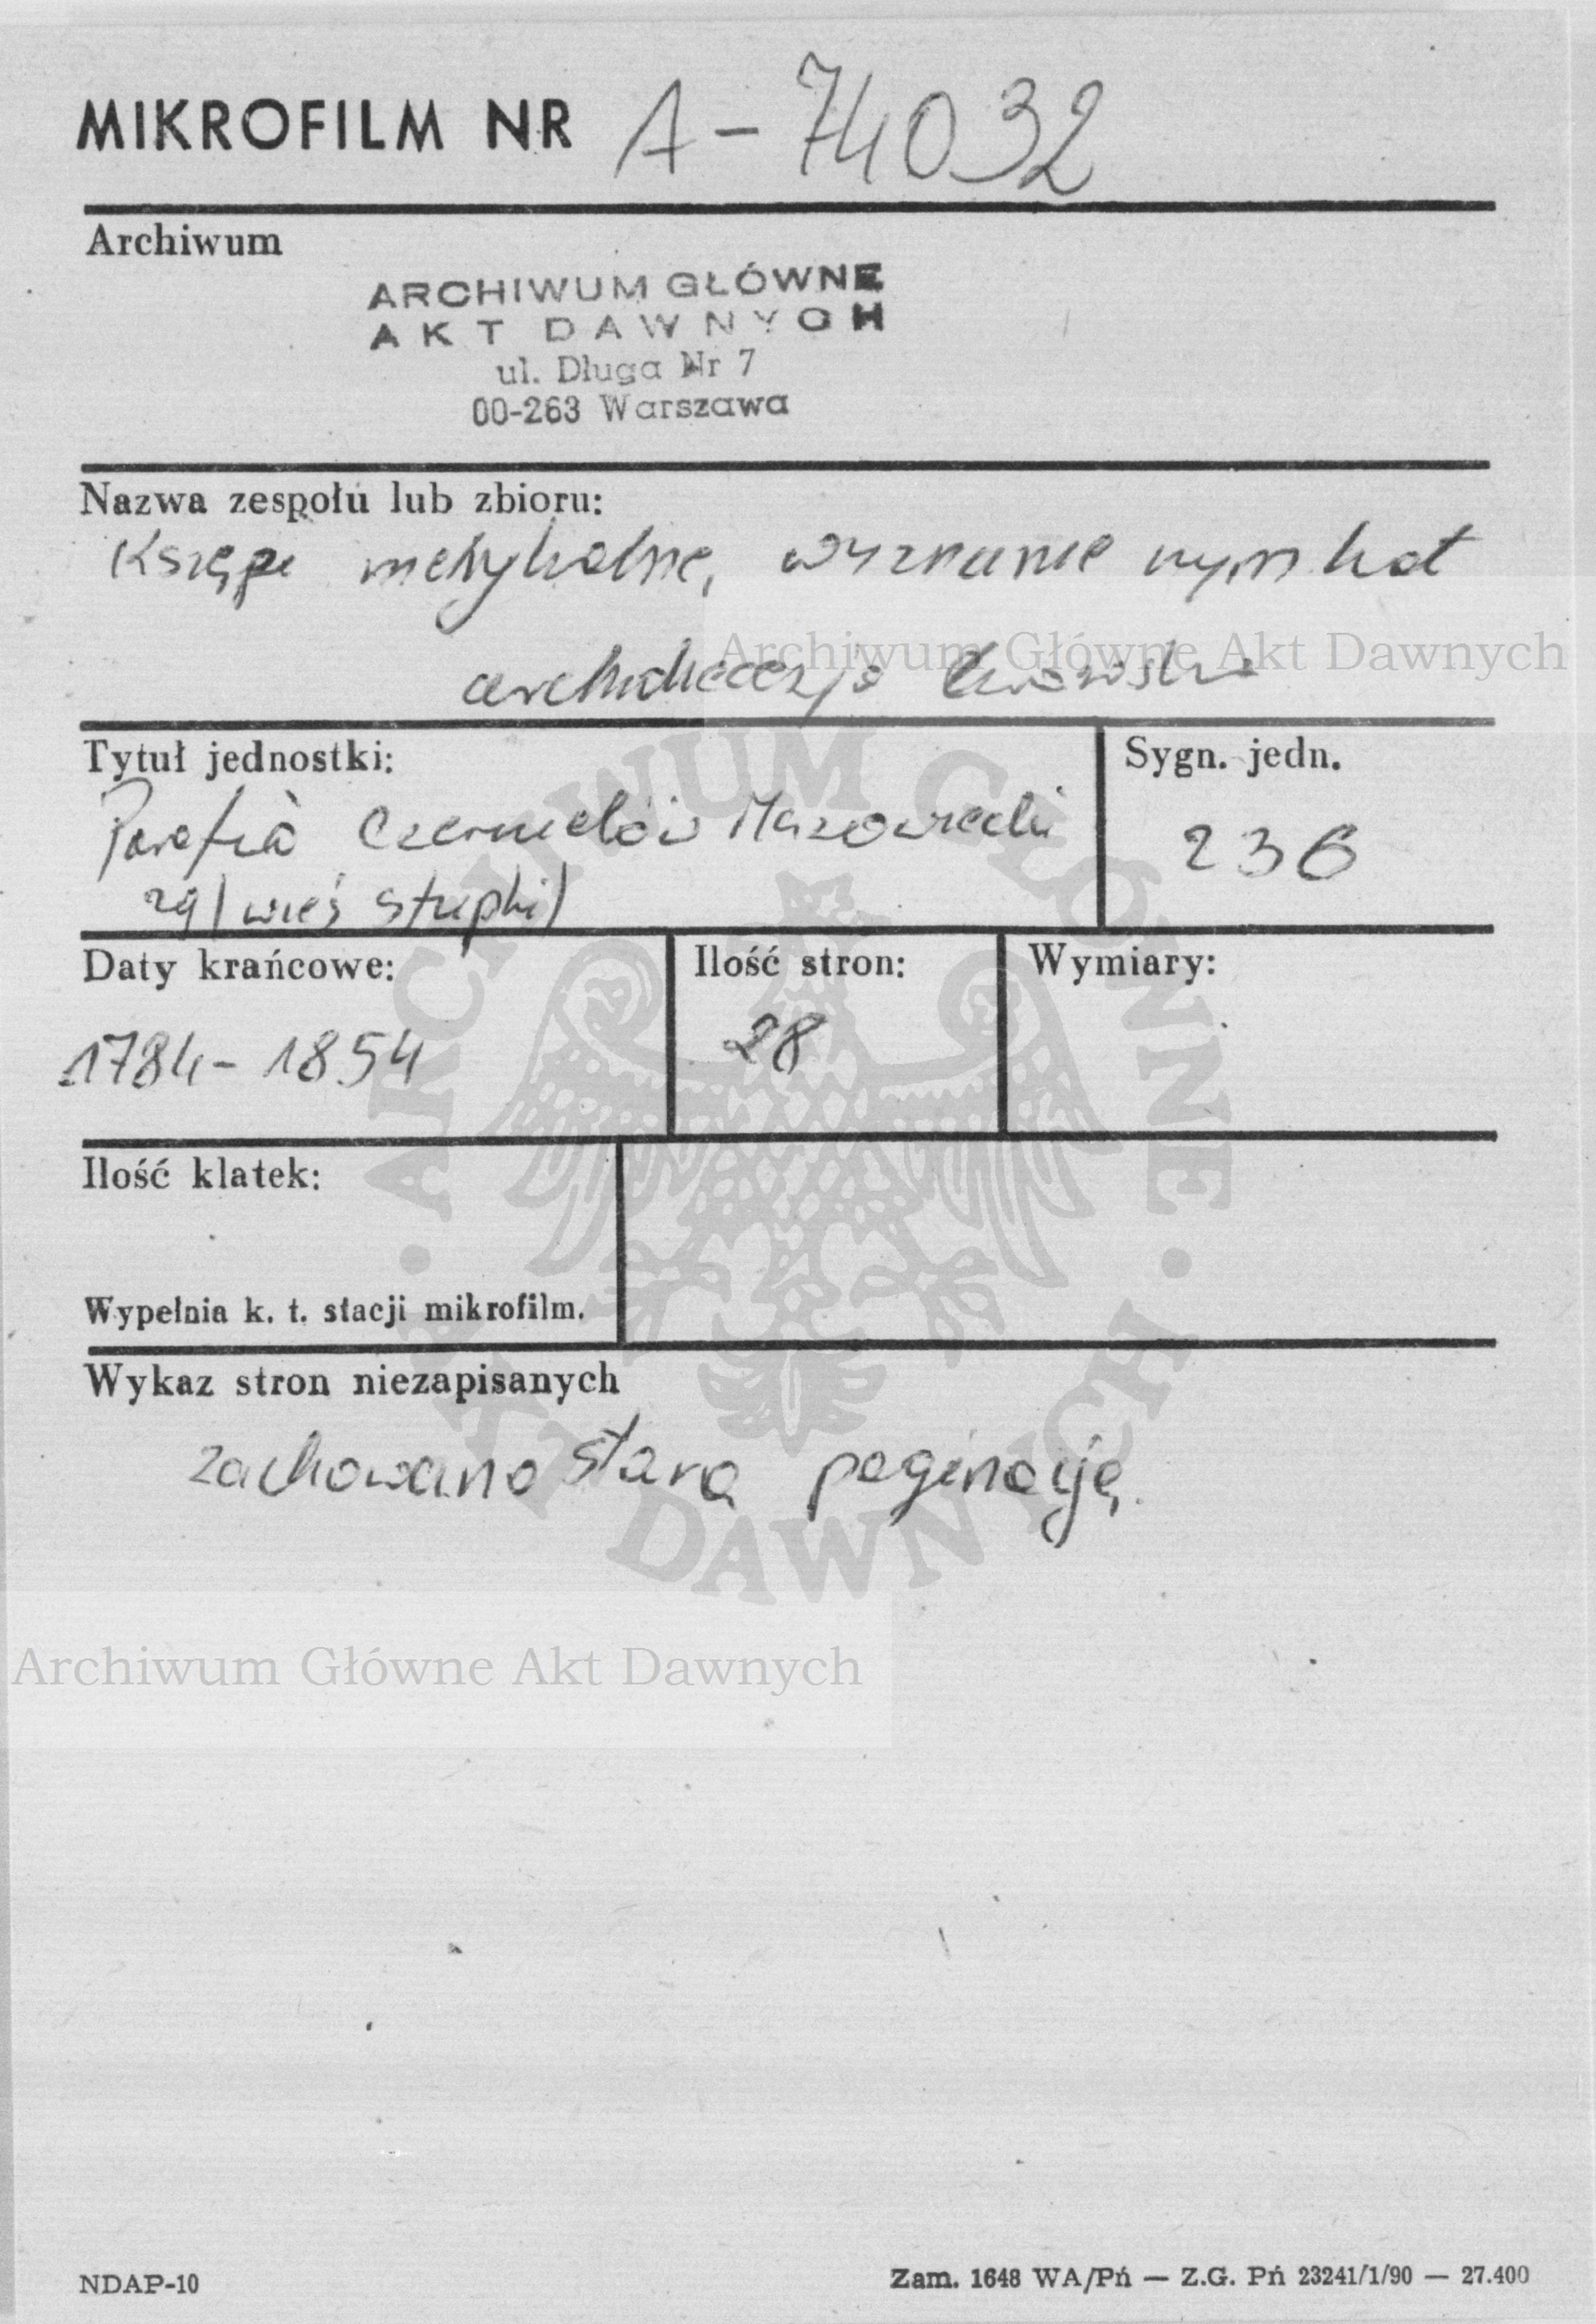 MIKROFILM NR A-74032
Archiwum
ARCHIWUM GŁÓWNE
AKT DAWNYCH
ul. Długa Nr 7
00-263 Warszawa
Nazwa zespołu lub zbioru:
Księgi metrykalne, wyznanie rzym kat
Archiwum Główne Akt Dawnych
archidiecezja lwowska
Tytuł jednostki:
Sygn. jedn.
Parafia Czernielów Mazowiecki
236
zg (wieś Stupki)
Daty krańcowe:
Ilość stron:
Wymiary:
1784-1854
28
Ilość klatek:
Wypełnia k. t. stacji mikrofilm.
Wykaz stron niezapisanych
zachowano starą paginację.
ARCHIWUM GŁÓWNE
AKT DAWNYCH
Archiwum Główne Akt Dawnych
NDAP-10
Zam. 1648 WA/Pń — Z.G. Pń 23241/1/90 — 27.400